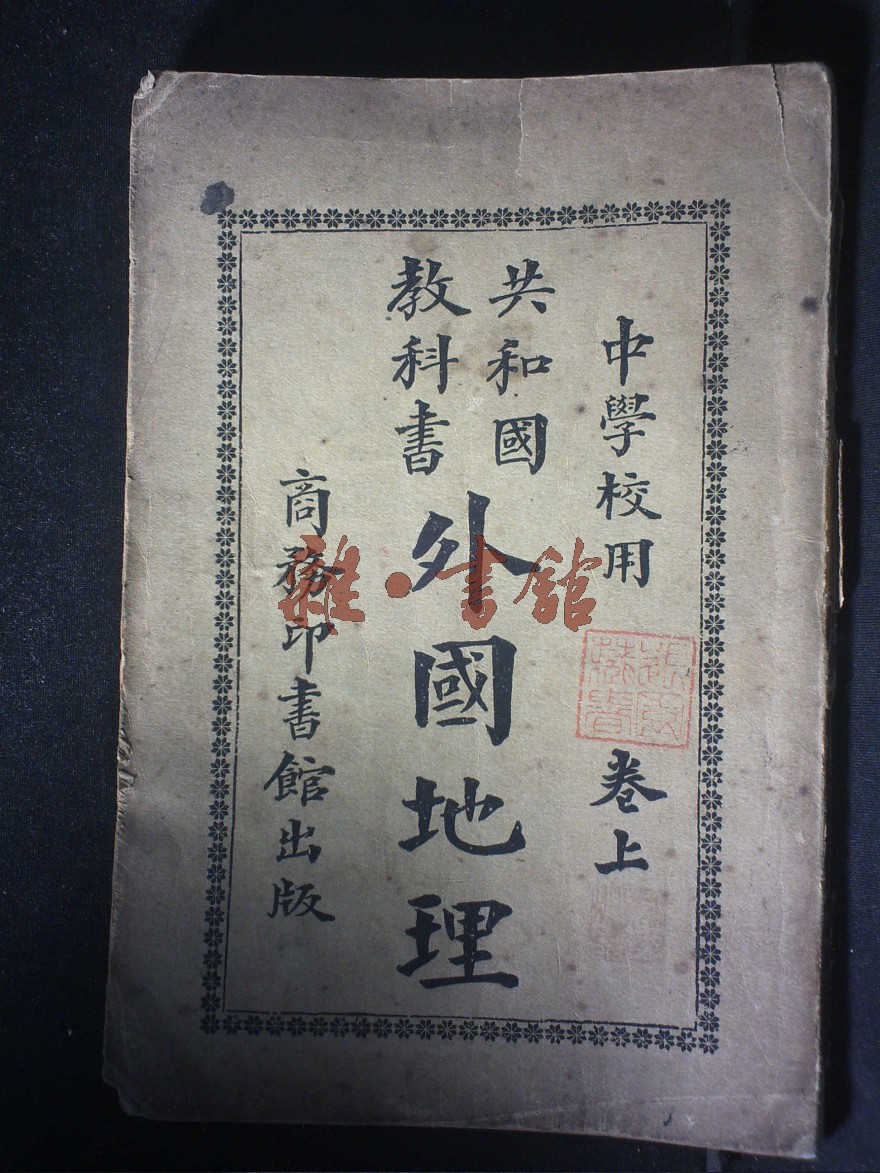 中學校用
卷上
共和國
教科書
外國地理
商務印書館出版
雜·書館